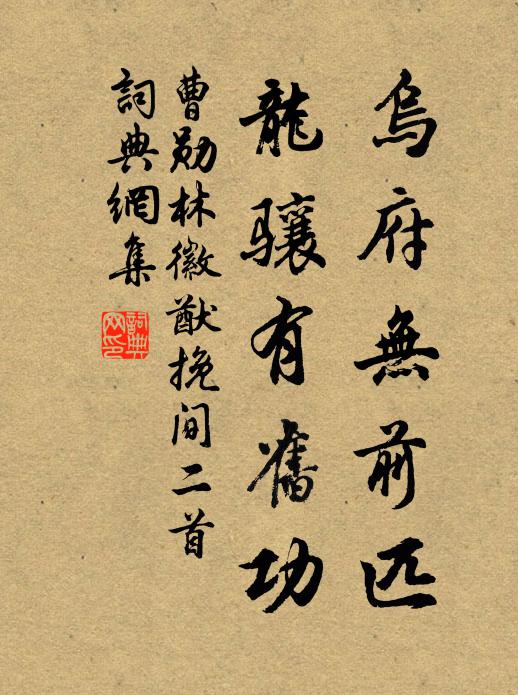 烏府無前匹
龍驤有舊功
曹勛林徽猷挽間二首
詞典網集
詞典網印